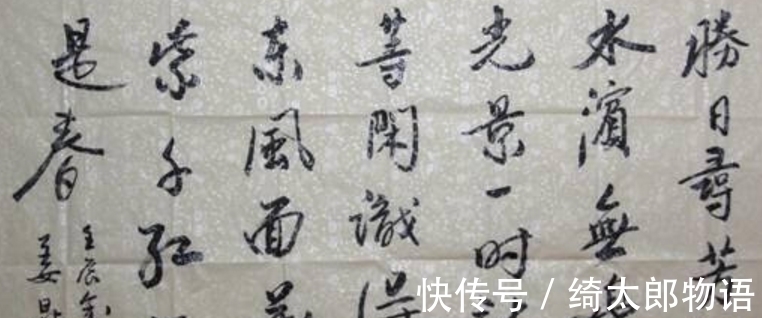 勝日尋芳
水濱無
光景一时
等閑識得
东風面萬
紫千紅
是春
壬辰
姜
快传号 / 绮太郎物语